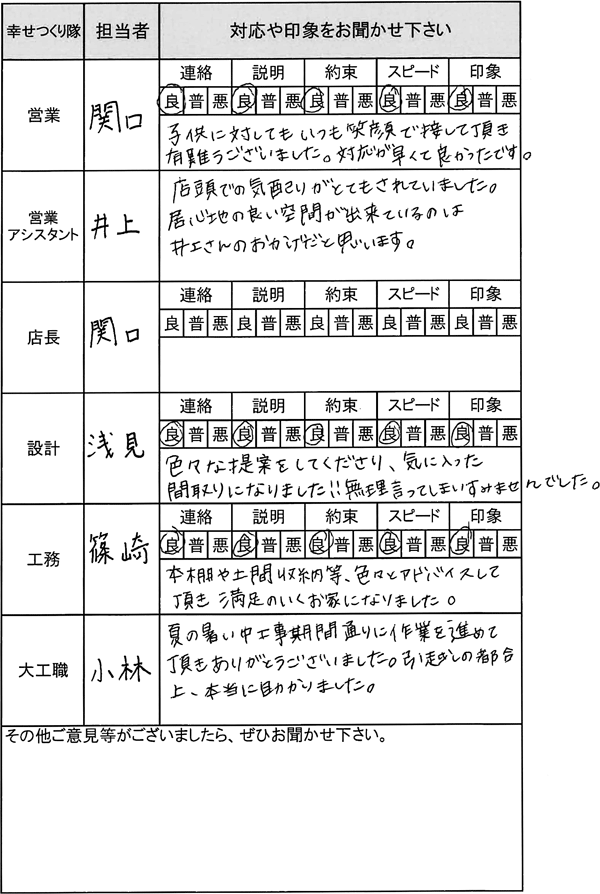 幸せつくり隊 担当者 対応や印象をお聞かせ下さい
営業 関口
連絡 説明 約束 スピード 印象
良 普 悪 良 普 悪 良 普 悪 良 普 悪 良 普 悪
子供に対してもいつも笑顔で接して頂き
有難うございました。対応が早くて良かったです。
営業
アシスタント 井上
店頭での気配りがとてもされていました。
居心地の良い空間が出来ているのは
井上さんのおかげだと思います。
店長 関口
連絡 説明 約束 スピード 印象
良 普 悪 良 普 悪 良 普 悪 良 普 悪 良 普 悪
設計 浅見
連絡 説明 約束 スピード 印象
良 普 悪 良 普 悪 良 普 悪 良 普 悪 良 普 悪
色々な提案をしてくださり、気に入った
間取りになりました!!無理言ってしまいすみませんでした。
工務 篠崎
連絡 説明 約束 スピード 印象
良 普 悪 良 普 悪 良 普 悪 良 普 悪 良 普 悪
本棚や土間収納等、色々とアドバイスして
頂き満足のいくお家になりました。
大工職 小林
夏の暑い中工事期間通りに作業を進めて
頂きありがとうございました。引越しの都合
上、本当に助かりました。
その他ご意見等がございましたら、ぜひお聞かせ下さい。